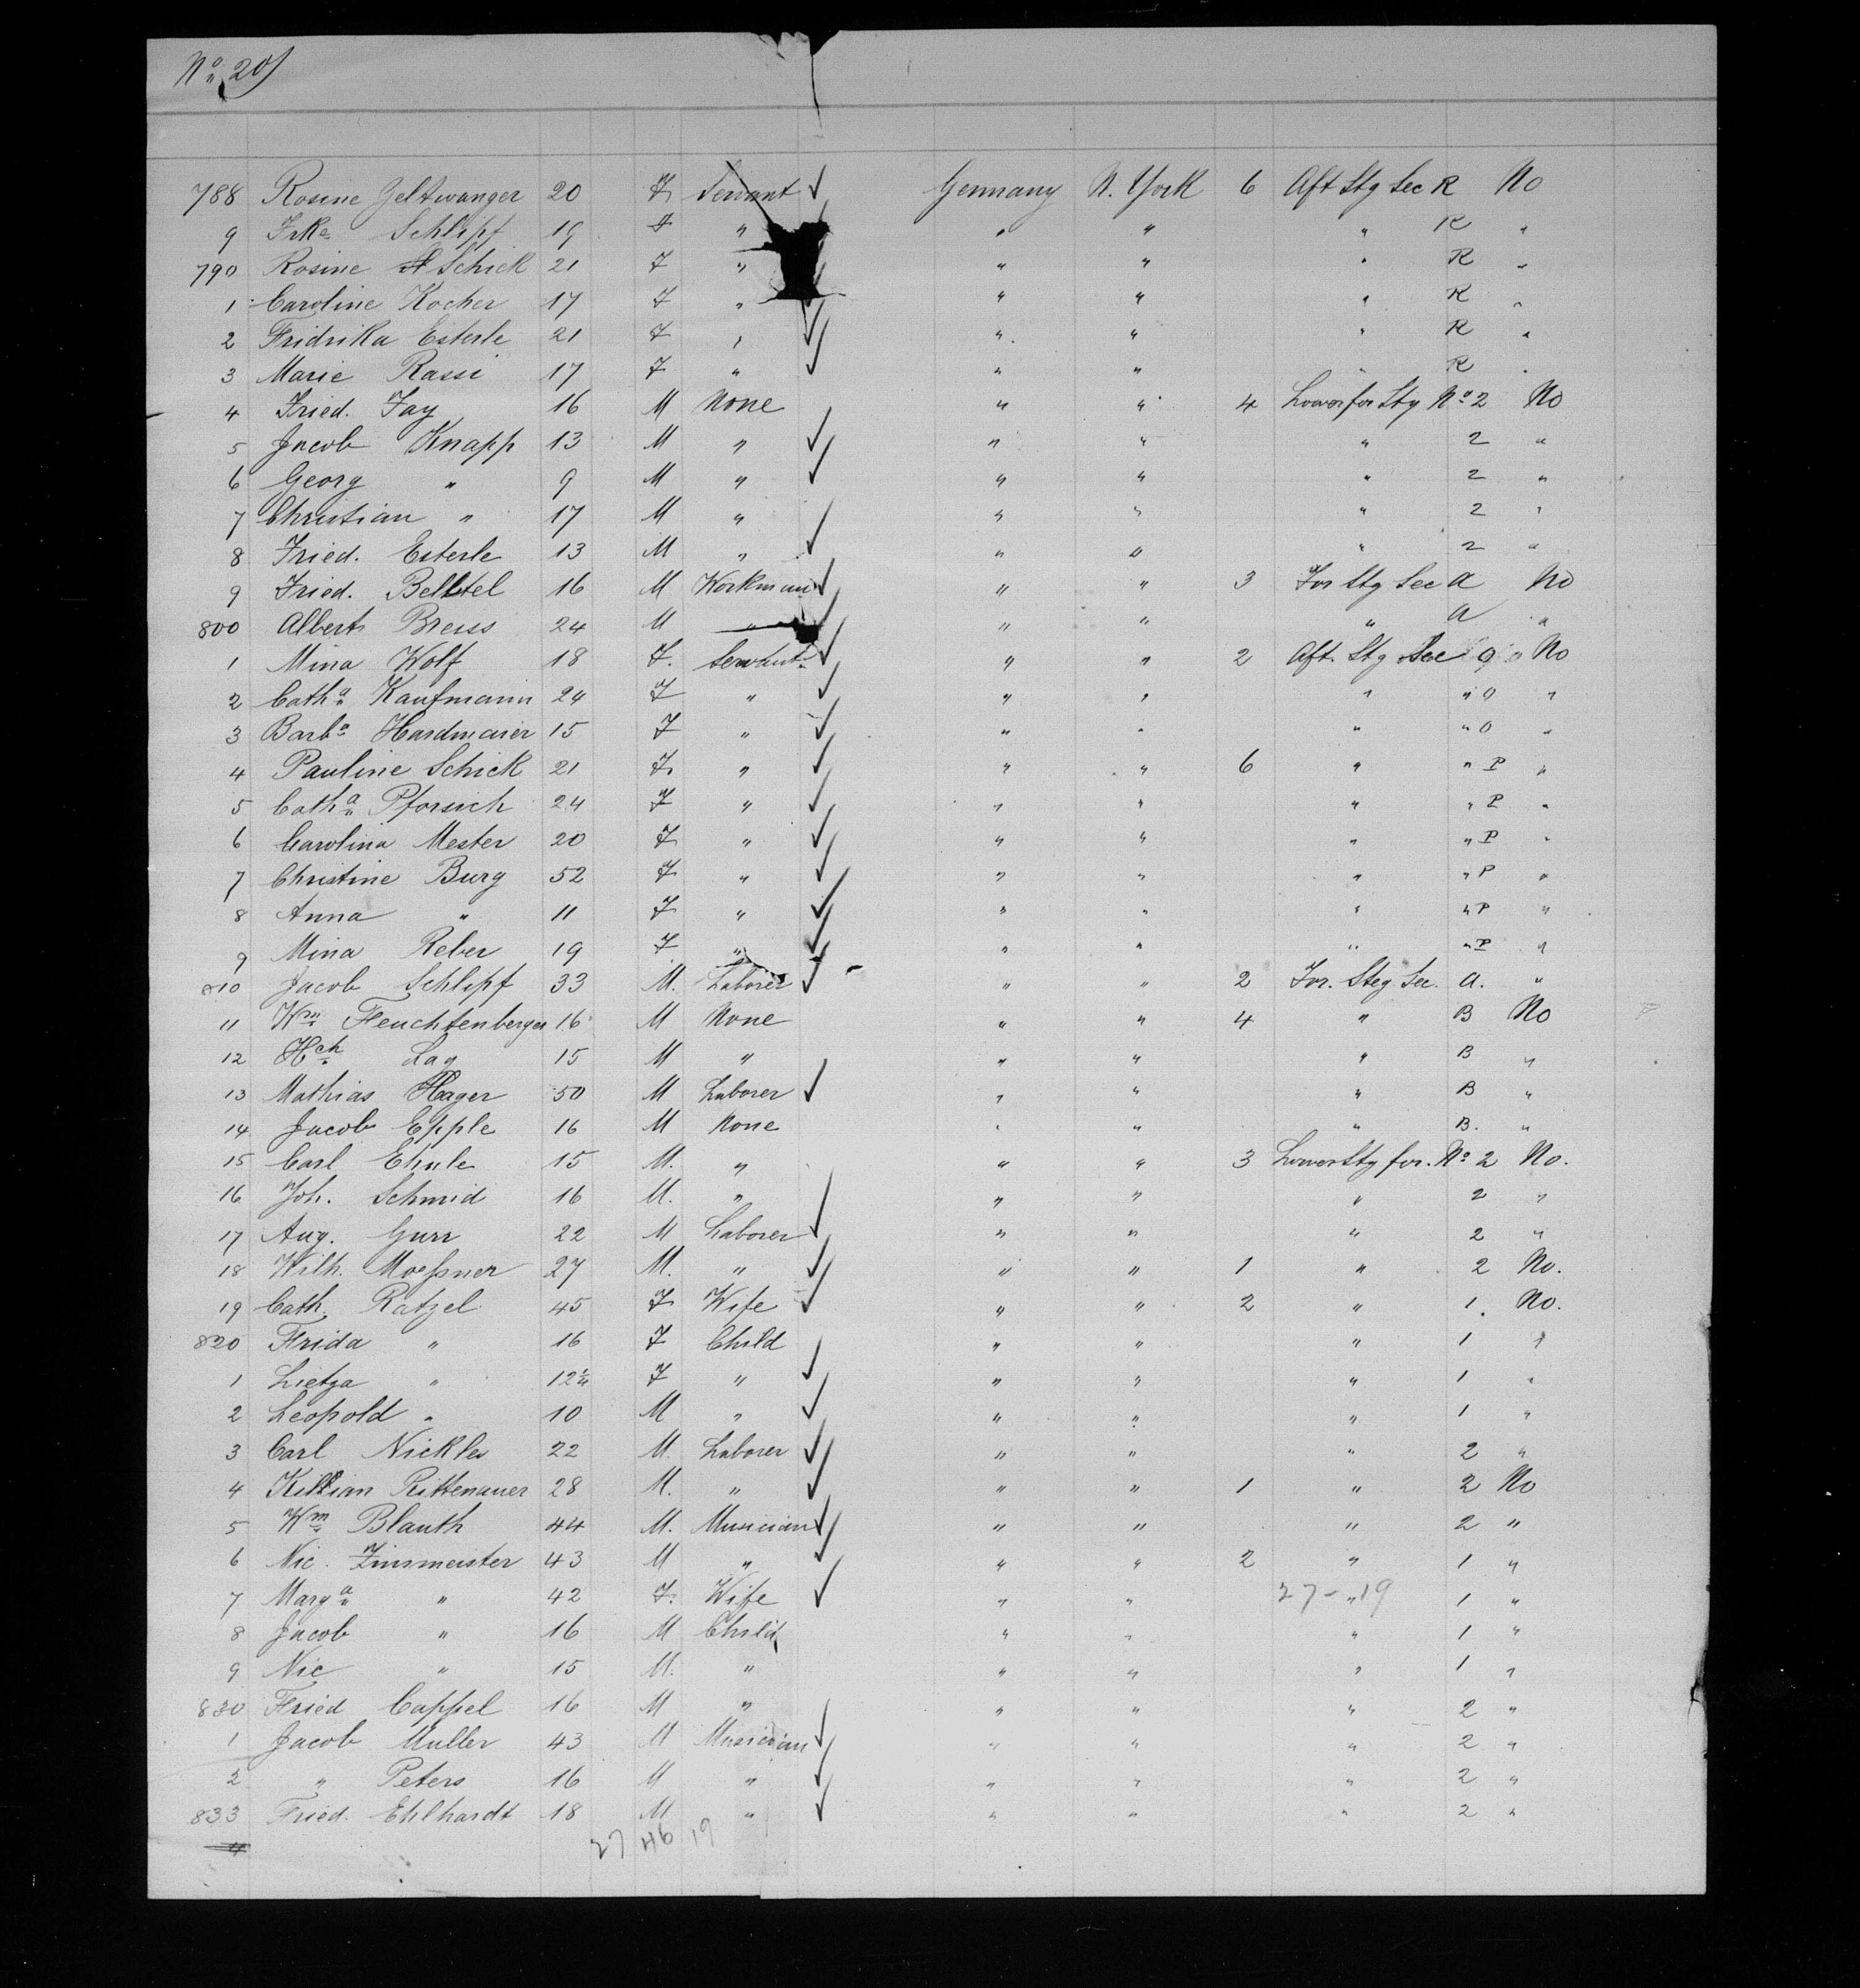 No 20)
788 Rosine Zeltwanger 20 F Servant ✓ Germany N. York 6 Aft Stg Sec R No
9 Frke Schlipf 19 F " " " " R "
790 Rosine Schick 21 F " " " " R "
1 Caroline Kocher 17 F " ✓ " " " R "
2 Fridrika Esterle 21 F " ✓ " " " R "
3 Marie Rassi 17 F " ✓ " " " R "
4 Fried. Fay 16 M None " " 4 Lower for Stg No 2 No
5 Jacob Knapp 13 M " ✓ " " " 2 "
6 Georg " 9 M " ✓ " " " 2 "
7 Christian " 17 M " " " " 2 "
8 Fried. Esterle 13 M " ✓ " " " 2 "
9 Fried. Belltel 16 M Workman ✓ " " 3 For Stg Sec A No
800 Albert Breiss 24 M " ✓ " " " A "
1 Mina Wolf 18 F. Servant ✓ " " 2 Aft. Stg Sec O No
2 Catha Kaufmann 24 F " ✓ " " " " O "
3 Barba Hardmaier 15 F " ✓ " " " " O "
4 Pauline Schick 21 F " ✓ " " 6 " " P "
5 Catha Pforsich 24 F " ✓ " " " " P "
6 Carolina Mester 20 F " ✓ " " " " P "
7 Christine Burg 52 F " ✓ " " " " P "
8 Anna " 11 F " ✓ " " " " P "
9 Mina Reber 19 F " ✓ " " " " P "
810 Jacob Schlipf 33 M. Laborer ✓ " " 2 For. Steg Sec. A. "
11 Wm Feuchtenberger 16 M None " " 4 " B No
12 Hch Lay 15 M " " " " B "
13 Mathias Hager 50 M Laborer ✓ " " " B "
14 Jacob Epple 16 M None " " " B. "
15 Carl Ehnle 15 M. " " " 3 Lower Stg for. No 2 No.
16 Joh. Schmid 16 M. " " " " 2 "
17 Aug. Gurr 22 M Laborer ✓ " " " 2 "
18 Wilh. Moessner 27 M. " ✓ " " 1 " 2 No.
19 Cath. Ratzel 45 F Wife ✓ " " 2 " 1. No.
820 Frida " 16 F Child " " " 1 "
1 Lietza " 12 F " ✓ " " " 1 "
2 Leopold " 10 M " ✓ " " " 1 "
3 Carl Nickles 22 M. Laborer ✓ " " " 2 "
4 Killian Rittenauer 28 M. " ✓ " " 1 " 2 No
5 Wm Blauth 44 M. Musician ✓ " " " 2 "
6 Nic. Zinsmeister 43 M " ✓ " " 2 " 1 "
7 Marga " 42 F. Wife ✓ " " 27-19 " 1 "
8 Jacob " 16 M Child " " " 1 "
9 Nic " 15 M. " " " " 1 "
830 Fried Cappel 16 M " " " " 2 "
1 Jacob Muller 43 M Musician ✓ " " " 2 "
2 " Peters 16 M " ✓ " " " 2 "
833 Fried. Ehlhardt 18 M " ✓ " " " 2 "
4
27 46 19